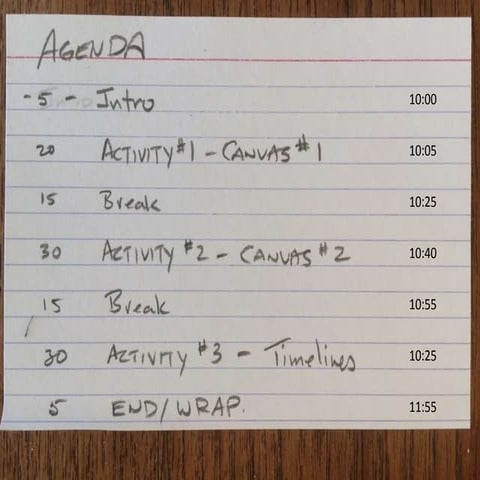 AGENDA
- 5 - Intro 10:00
20 ACTIVITY #1 - CANVAS #1 10:05
15 Break 10:25
30 ACTIVITY #2 - CANVAS #2 10:40
15 Break 10:55
30 ACTIVITY #3 - Timelines 10:25
5 END/WRAP. 11:55